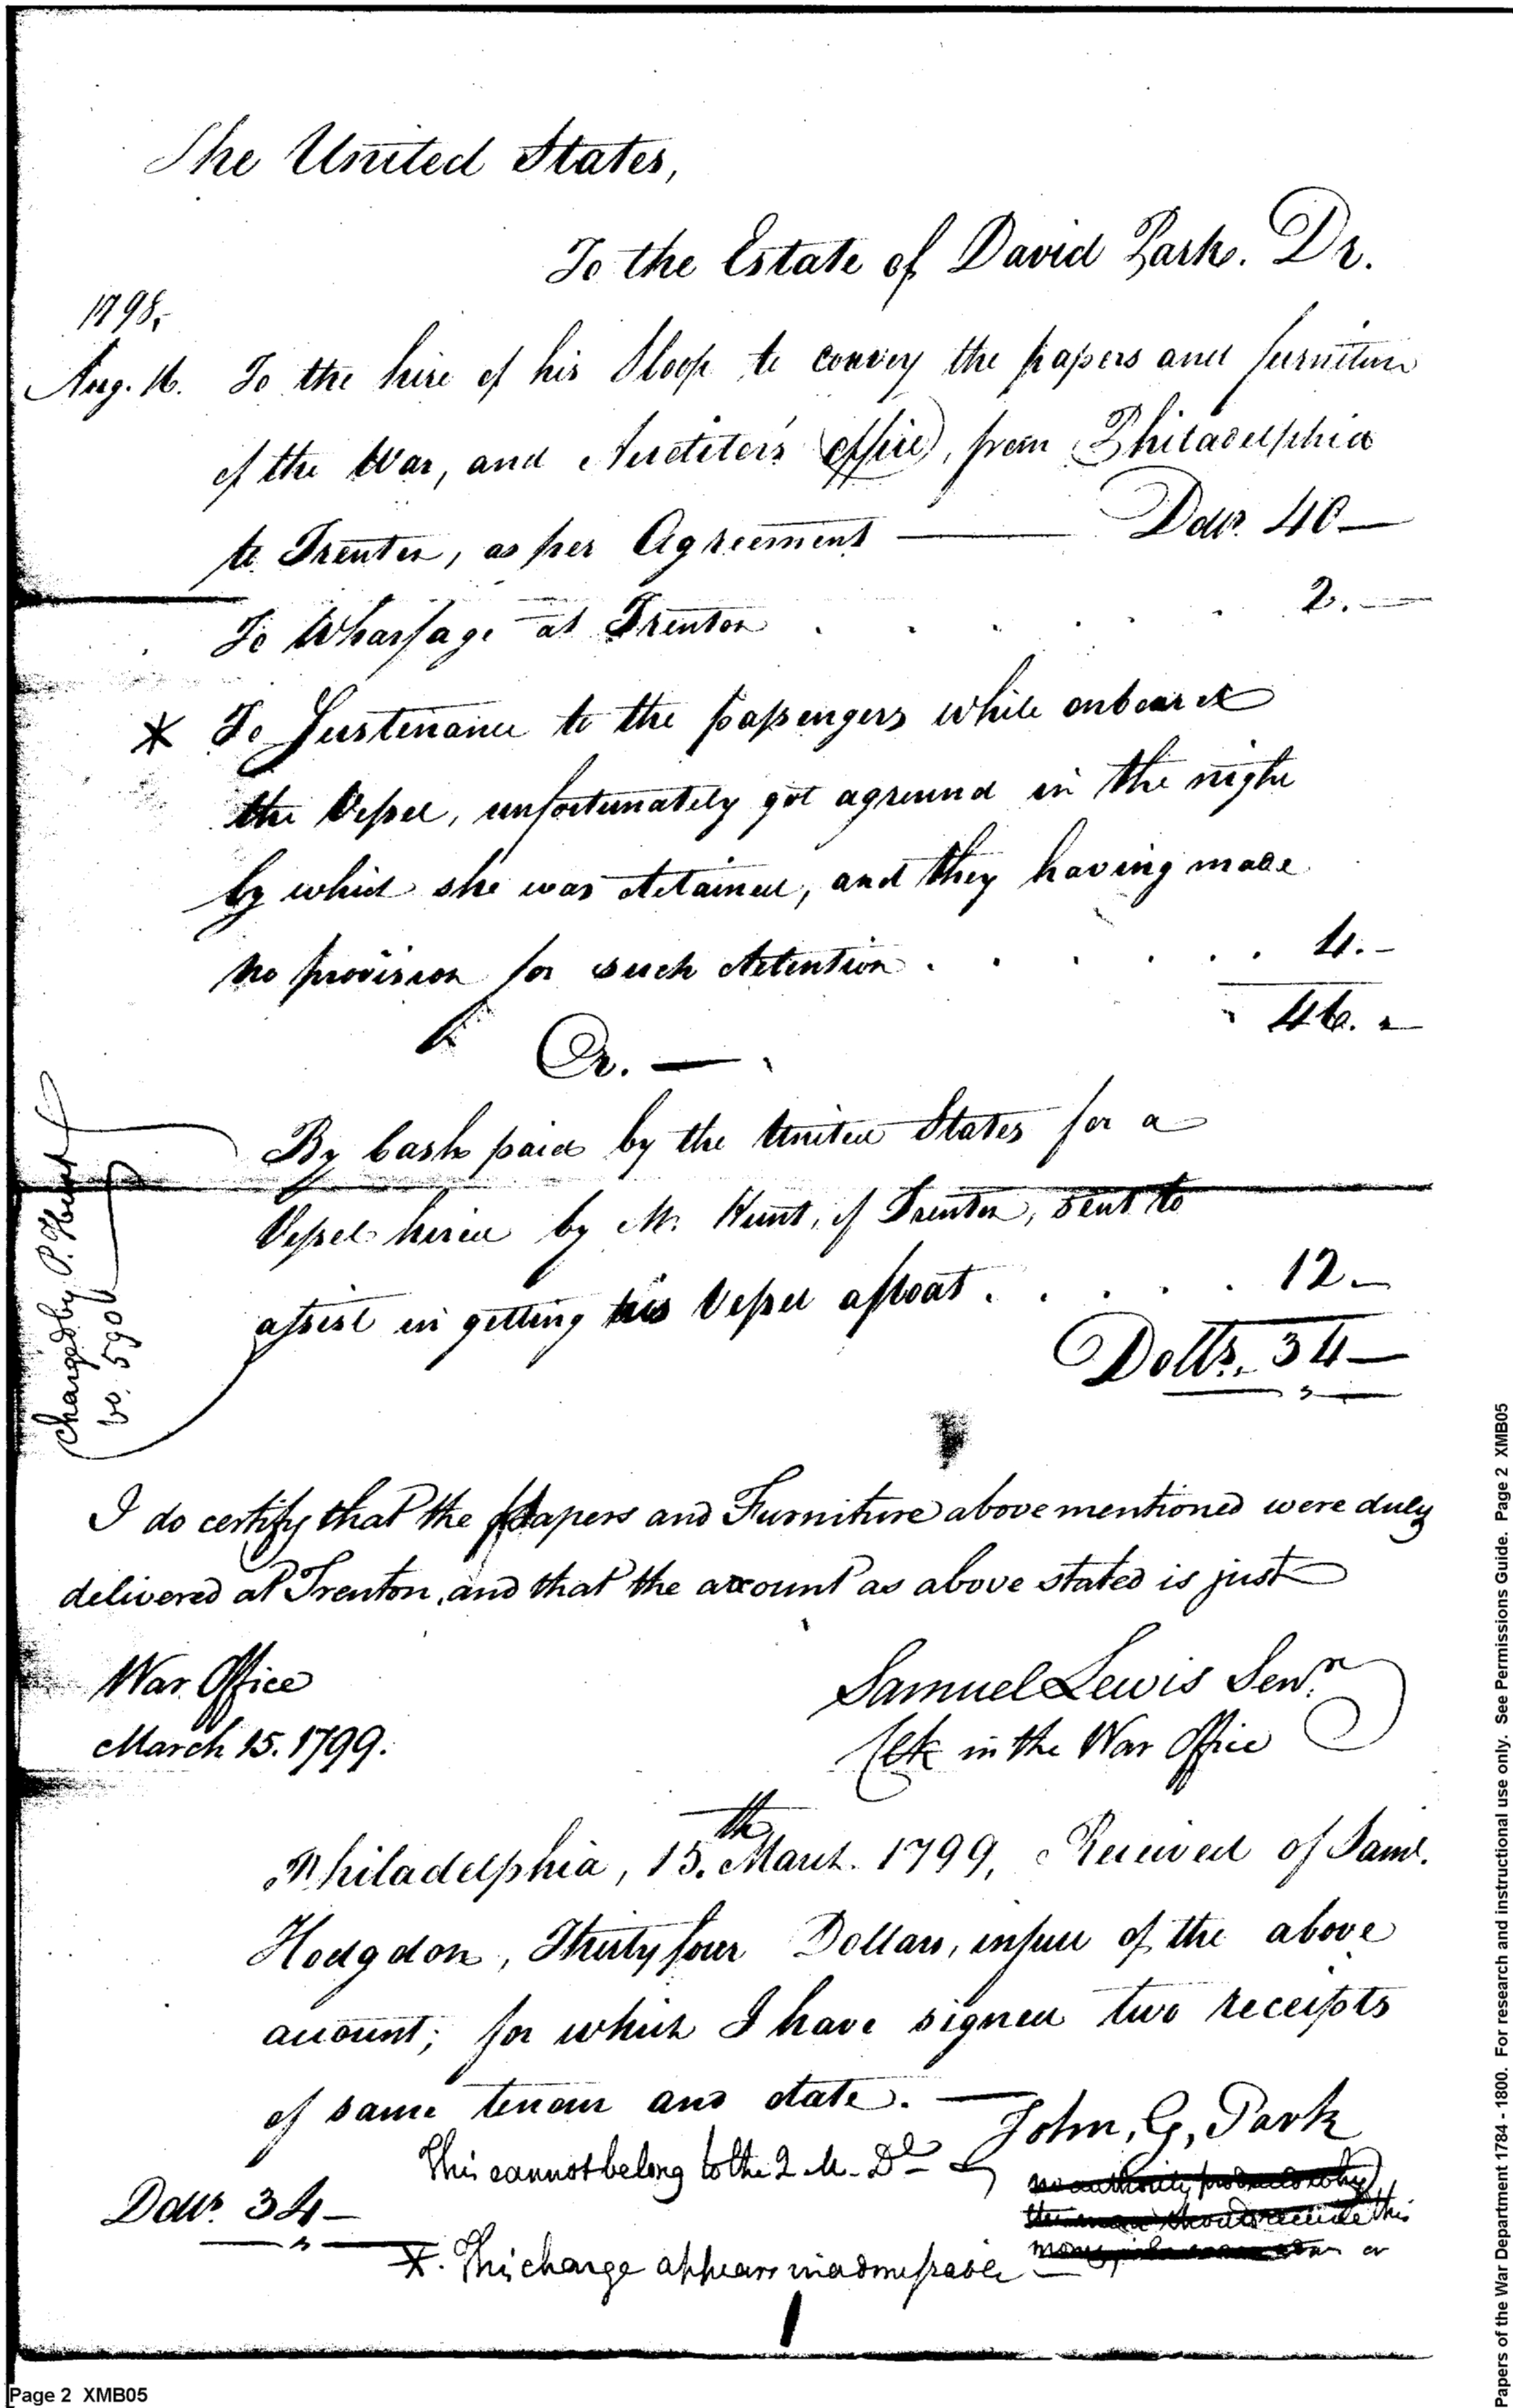 The United States,
To the Estate of David Park. Dr.
1798,
Aug. 16. To the hire of his Sloop to convey the papers and furniture
of the War, and Auditor's office, from Philadelphia
to Trenton, as per Agreement — Dolls. 40 —
To Wharfage at Trenton . . . . . . 2. —
* To Sustenance to the passengers while onboard
the Vessel, unfortunately got aground in the night
by which she was detained, and they having made
no provision for such detention . . . . . . 4. -
46. -
Cr. —
By Cash paid by the United States for a
Vessel hired by Mr. Hunt, of Trenton, sent to
assist in getting his Vessel afloat . . . . . 12 -
Dolls. 34 —
Charged by P. Hunt
vo. 590
I do certify that the papers and Furniture above mentioned were duly
delivered at Trenton, and that the account as above stated is just
War Office
March 15. 1799.
Samuel Lewis Senr.
Clk in the War Office
Philadelphia, 15.th March. 1799, Received of Saml.
Hodgdon, Thirty four Dollars, in full of the above
account; for which I have signed two receipts
of same tenor and date. —
John, G, Park
This cannot belong to the 2 M. Dl
no authority produced why
the man should receive this
or
Dolls. 34 —
*. This charge appears inadmissable —
Page 2 XMB05
Papers of the War Department 1784 - 1800. For research and instructional use only. See Permissions Guide. Page 2 XMB05